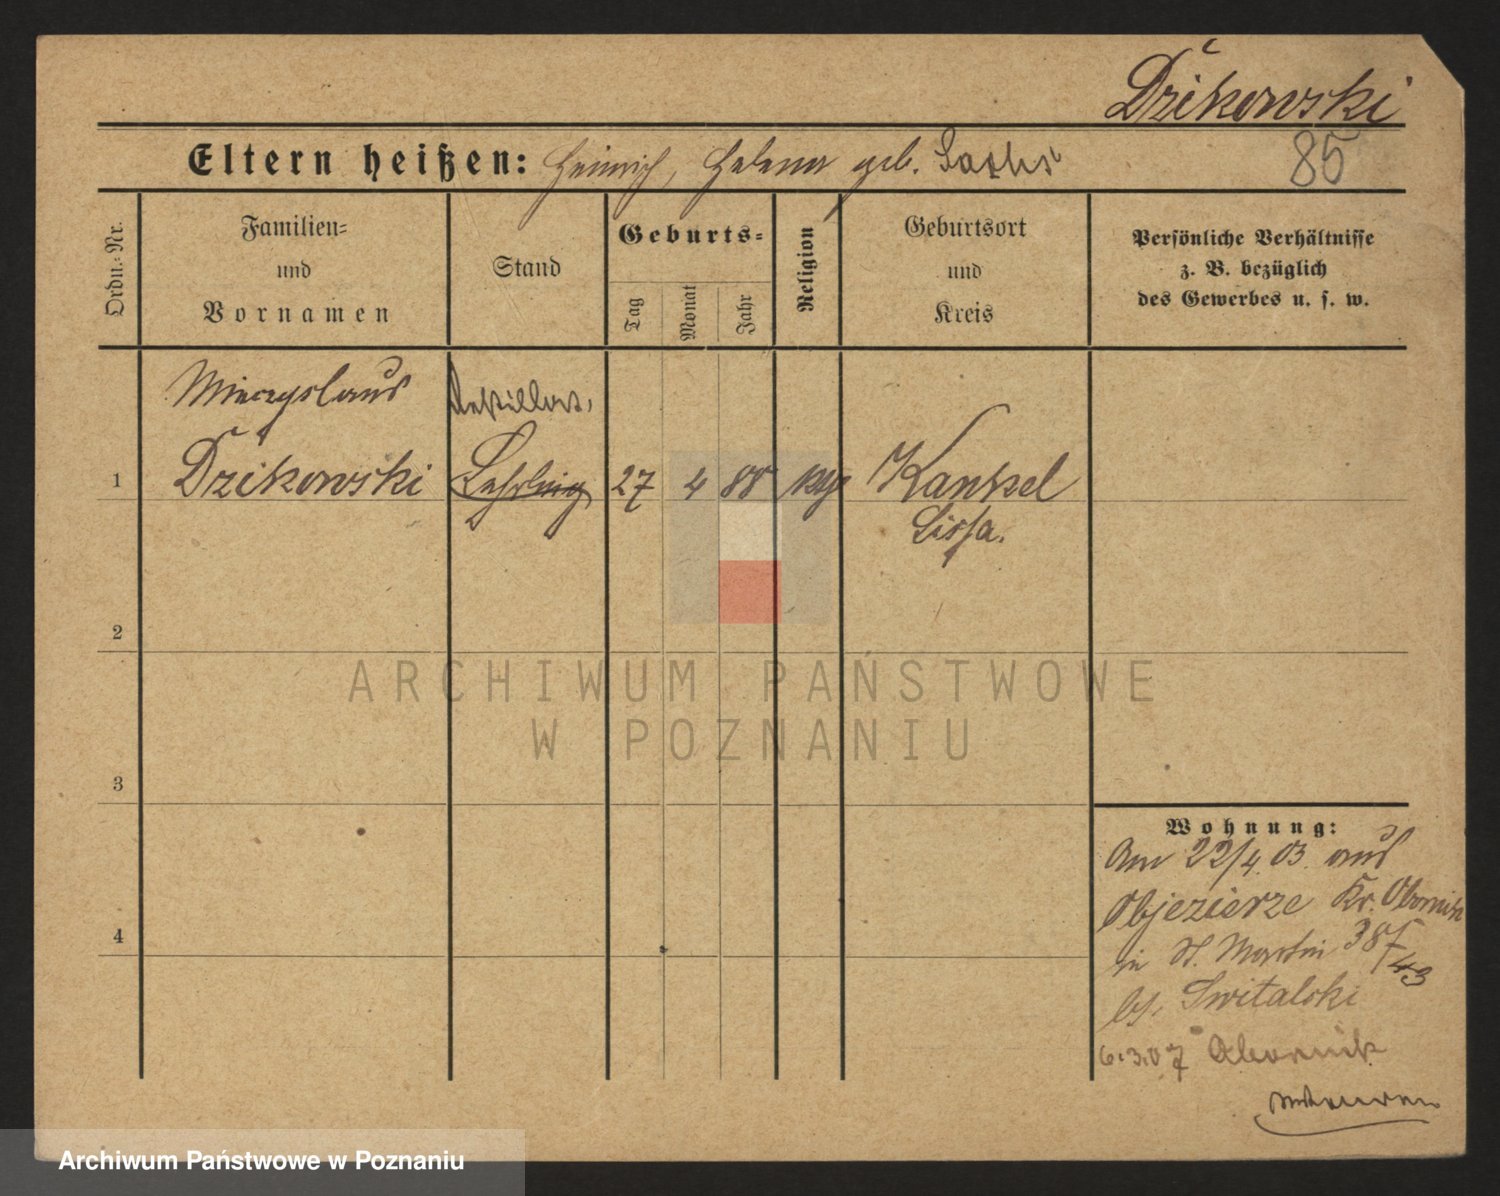 Dzikowski
Eltern heißen: Heinrich, Helena geb. Sachs
85
Ordn.-Nr.
Familien-
und
Vornamen
Stand
Geburts-
Tag
Monat
Jahr
Religion
Geburtsort
und
Kreis
Persönliche Verhältnisse
z. B. bezüglich
des Gewerbes u. s. w.
Mieczyslaus
Destillat.
1
Dzikowski
Lehrling
27
4
88
Kankel
Lissa.
2
ARCHIWUM PAŃSTWOWE
W POZNANIU
3
4
Wohnung:
Am 22/4.03. aus
Objezierze Kr. Obornik
in St. Martin 38/43
bei Switalski
6.3.07 Obornik
Archiwum Państwowe w Poznaniu